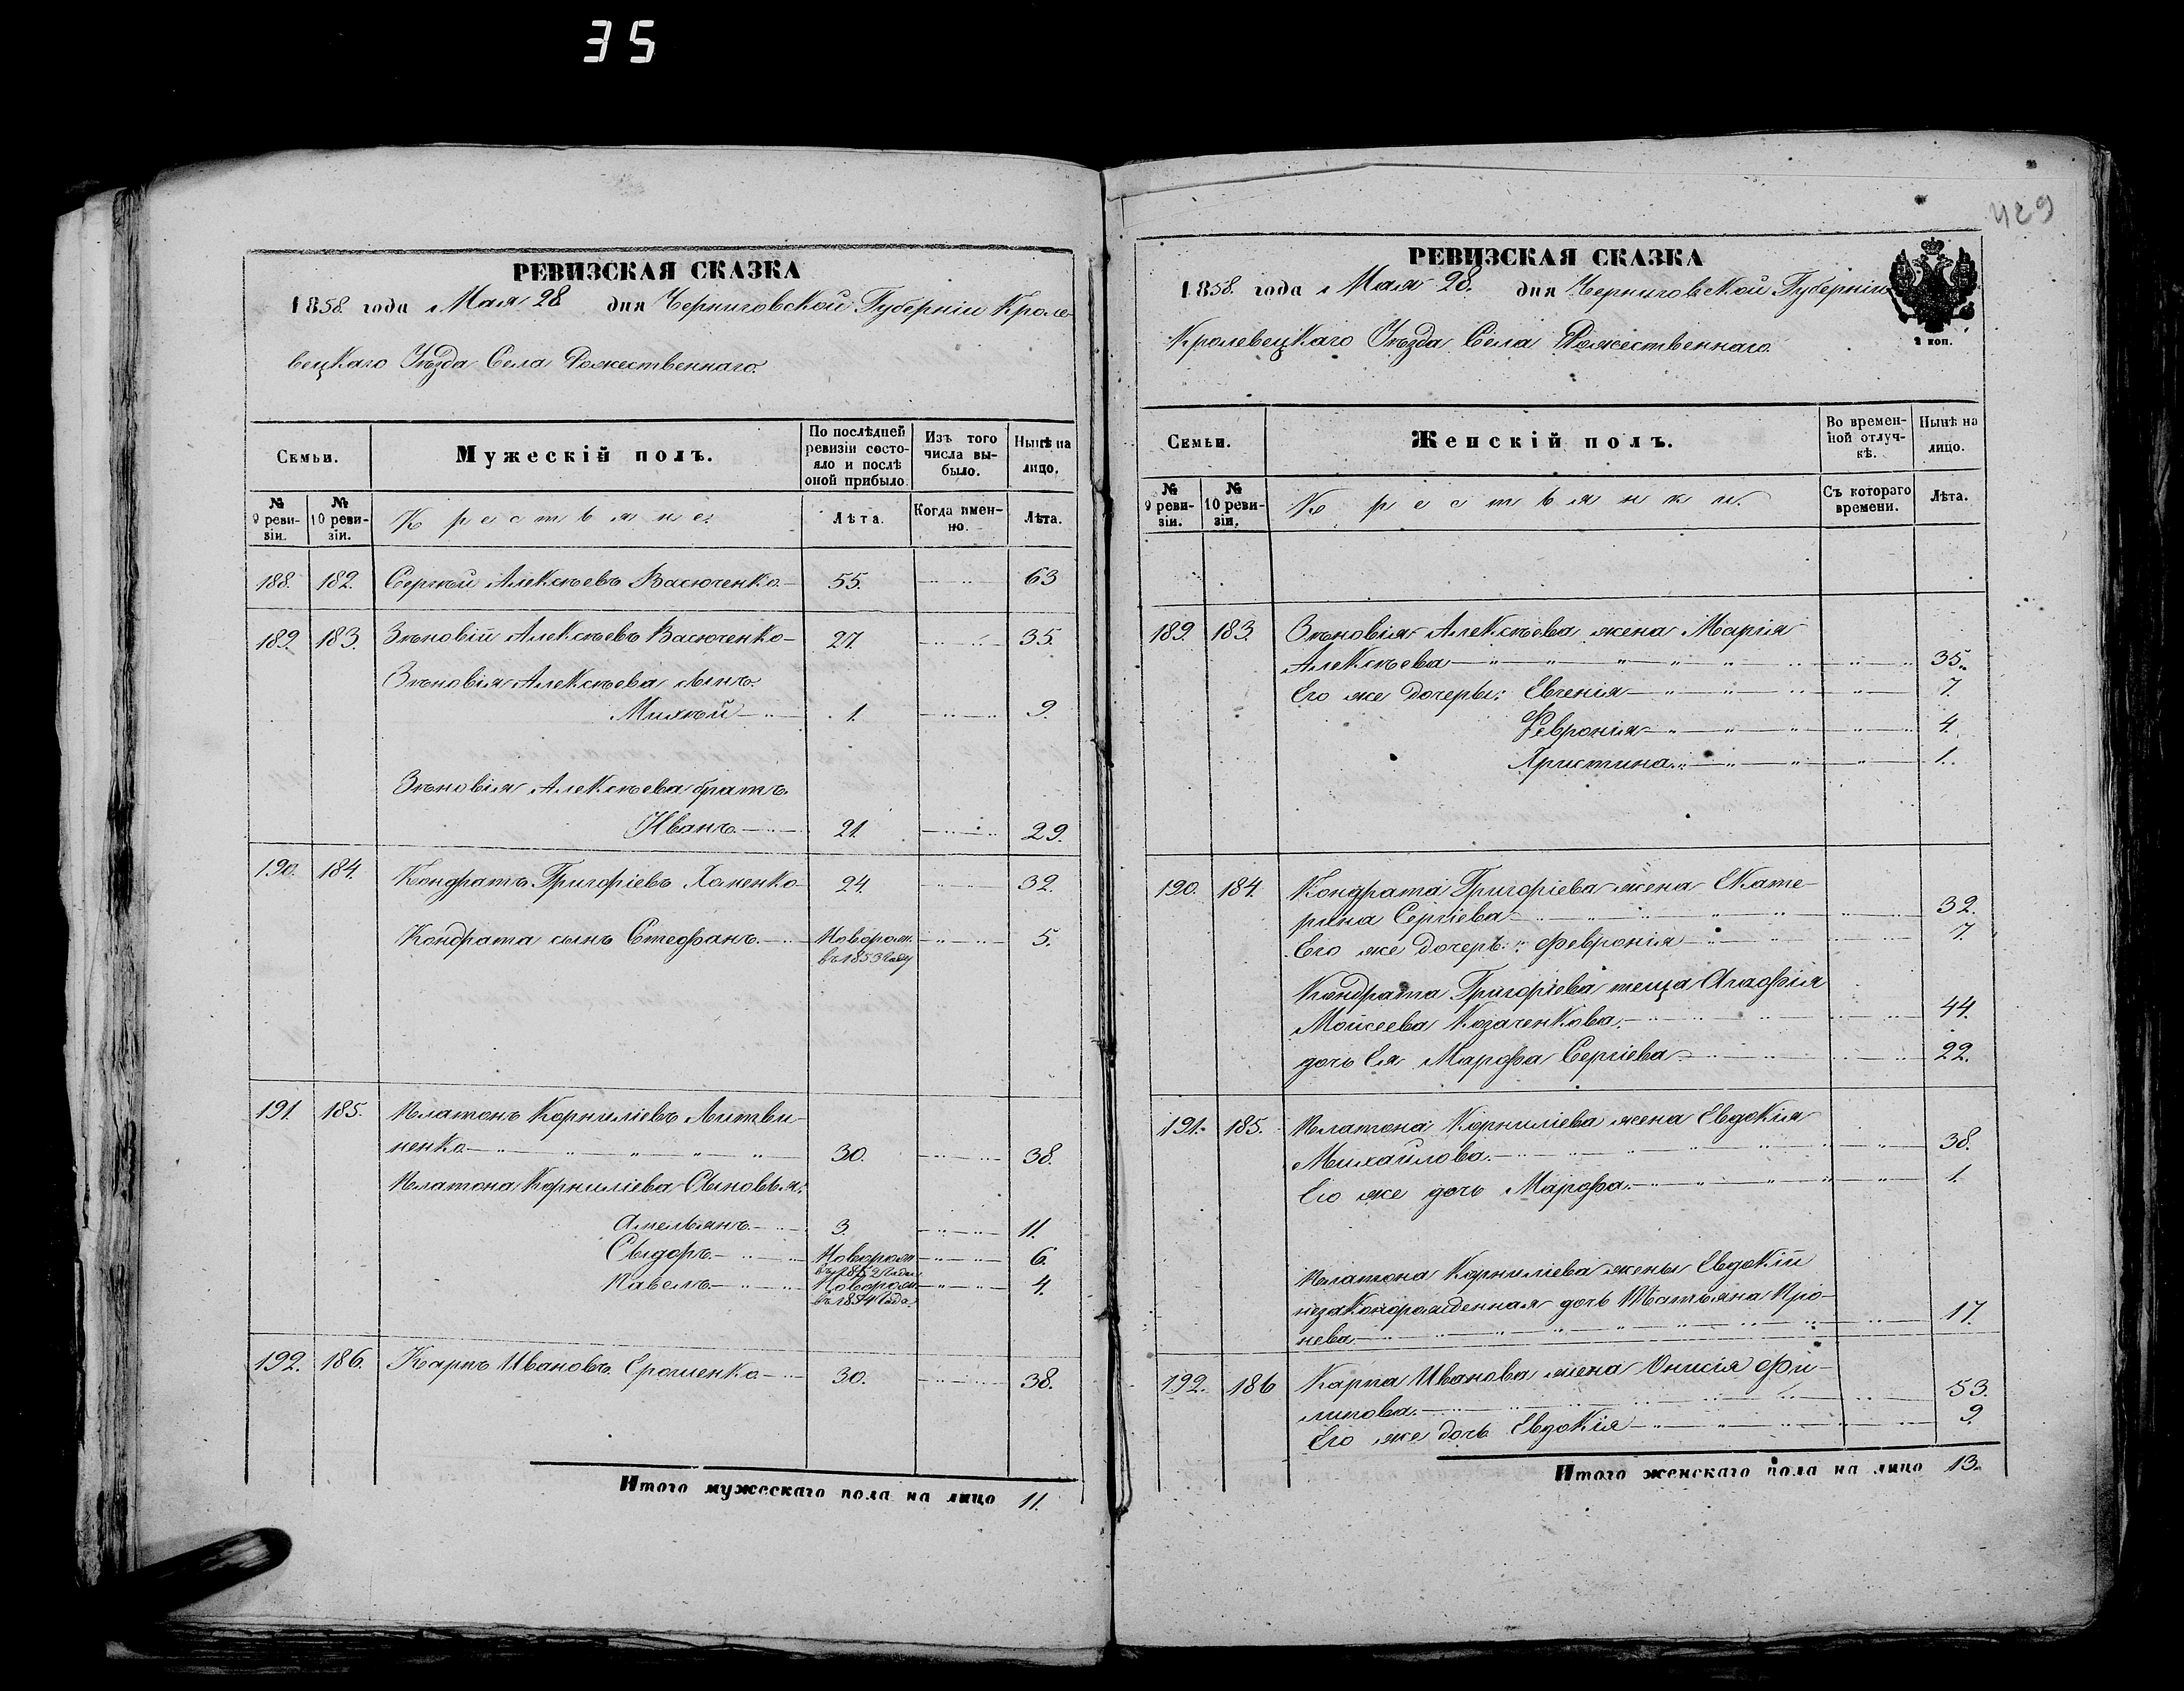 35
РЕВИЗСКАЯ СКАЗКА
1858. года Мая 28 дня Черниговской Губерніи Кроле-
вецкаго Уѣзда Села Рожественнаго.
Семьи.
Мужескій полъ.
По послѣдней ревизіи состояло и послѣ оной прибыло.
Изъ того числа выбыло.
Нынѣ на лицо.
№ 9 ревизіи.
№ 10 ревизіи.
Крестьяне.
Лѣта.
Когда именно.
Лѣта.
188. 182. Сергѣй Алексѣевъ Васюченко 55. 63
189. 183. Зѣновій Алексѣевъ Васюченко 27. 35.
Зѣновія Алексѣева сынъ
Михѣй 1. 9.
Зѣновія Алексѣева братъ
Иванъ 21. 29.
190. 184. Кондратъ Григоріевъ Хоменко 24. 32.
Кондрата сынъ Стефанъ. Новорож. 5.
въ 1853 году
191. 185. Платонъ Корниліевъ Литви-
ненко 30. 38.
Платона Корниліева Сыновья:
Амельянъ 3. 11.
Сыдоръ Новорож 6.
въ 1852 году
Павелъ Новорож 4.
въ 1854 году
192. 186. Карпъ Ивановъ Ерошенко 30. 38.
Итого мужескаго пола на лицо 11.
429
РЕВИЗСКАЯ СКАЗКА
1858. года Мая 28. дня Черниговской Губерніи
Кролевецкаго Уѣзда Села Рожественнаго.
2 коп.
Семьи.
Женскій полъ.
Во временной отлучкѣ.
Нынѣ на лицо.
№ 9 ревизіи.
№ 10 ревизіи.
Крестьянки.
Съ котораго времени.
Лѣта.
189. 183. Зѣновія Алексѣева жена Марія
Алексѣева 35.
Его же дочеры: Евгенія 7.
Февронія 4.
Христина 1.
190. 184. Кондрата Григоріева жена Екате-
рина Сергіева 32.
Его же дочерь: Февронія 7.
Кондрата Григоріева теща Агафія
Мойсеева Козаченкова 44.
дочь Ея Марфа Сергіева 22.
191. 185. Платона Корниліева жена Евдокія
Михайлова. 38.
Его же дочь Марфа. 1.
Платона Корниліева жены Евдокіи
незаконорожденная дочь Татьяна
нева 17.
192. 186 Карпа Иванова жена Онисія Фи-
липова. 53.
Его же дочь Евдокія 9.
Итого женскаго пола на лицо 13.